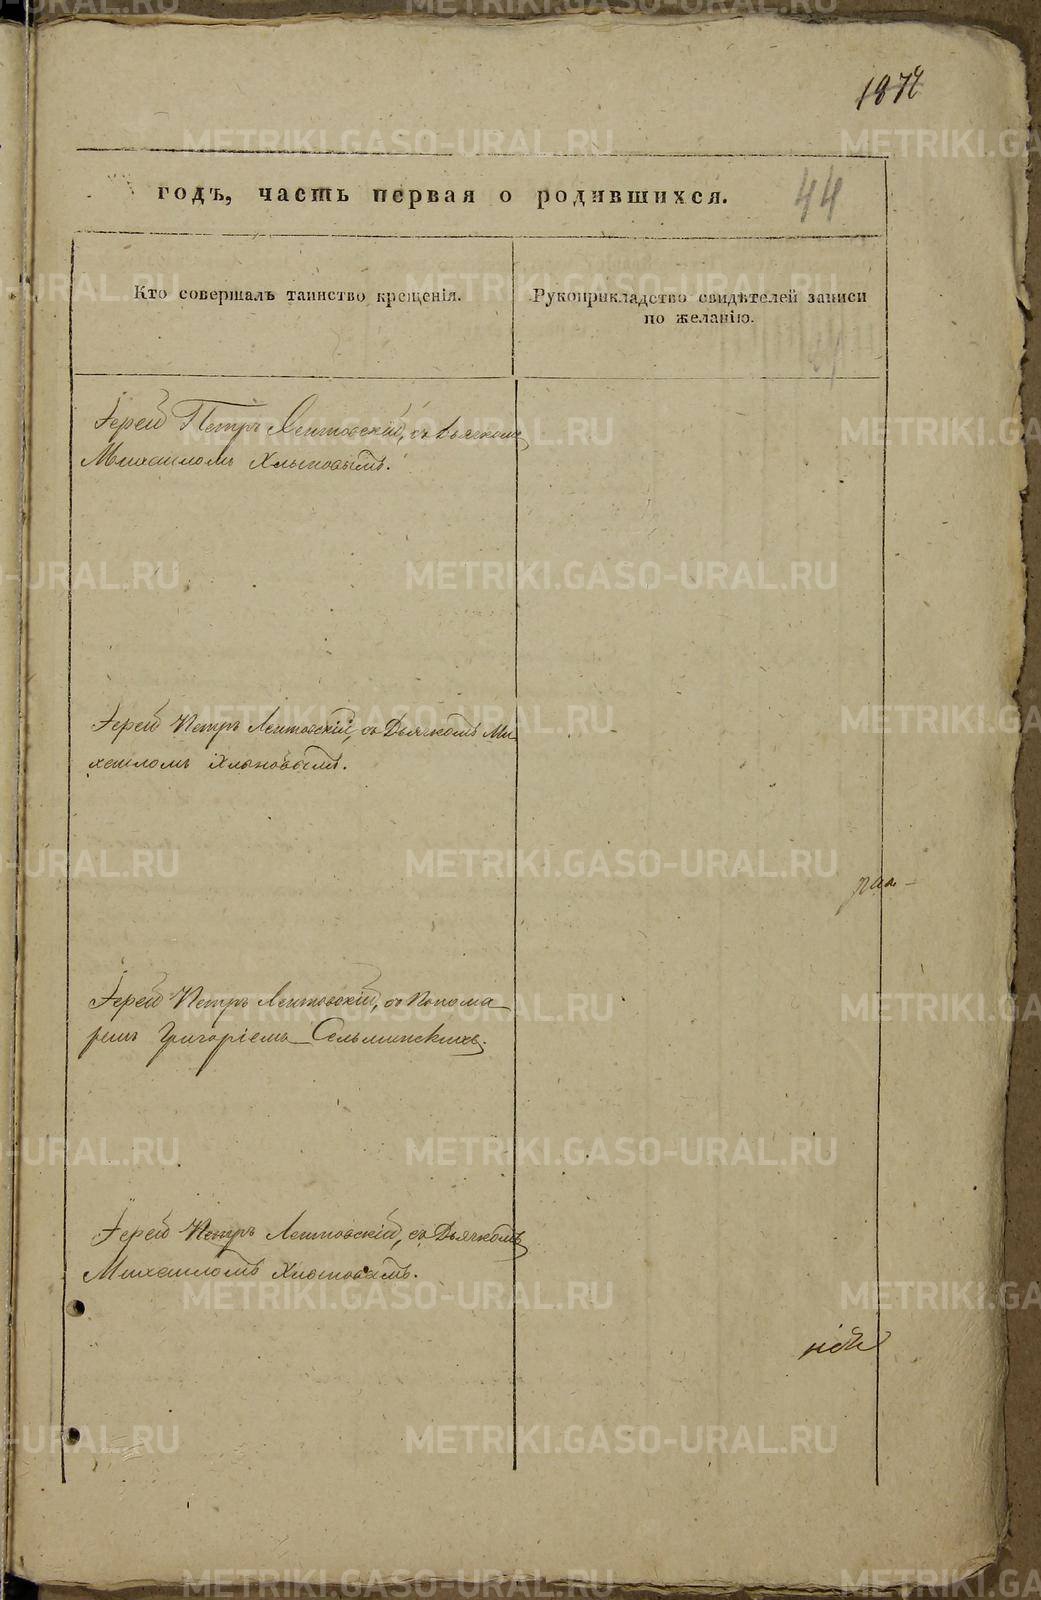 187
годъ, часть первая о родившихся.
44
Кто совершалъ таинство крещенія.
Рукоприкладство свидѣтелей записи
по желанію.
Іерей Петръ Лентовскій, съ Дьячкомъ
Михаиломъ Хлыновымъ.
Іерей Петръ Лентовскій, съ Дьячкомъ Ми
хаиломъ Хлыновымъ.
Іерей Петръ Лентовскій, съ Понома
ремъ Григоріемъ Сельминскихъ.
Іерей Петръ Лентовскій, съ Дьячкомъ
Михаиломъ Хлыновымъ.
METRIKI.GASO-URAL.RU